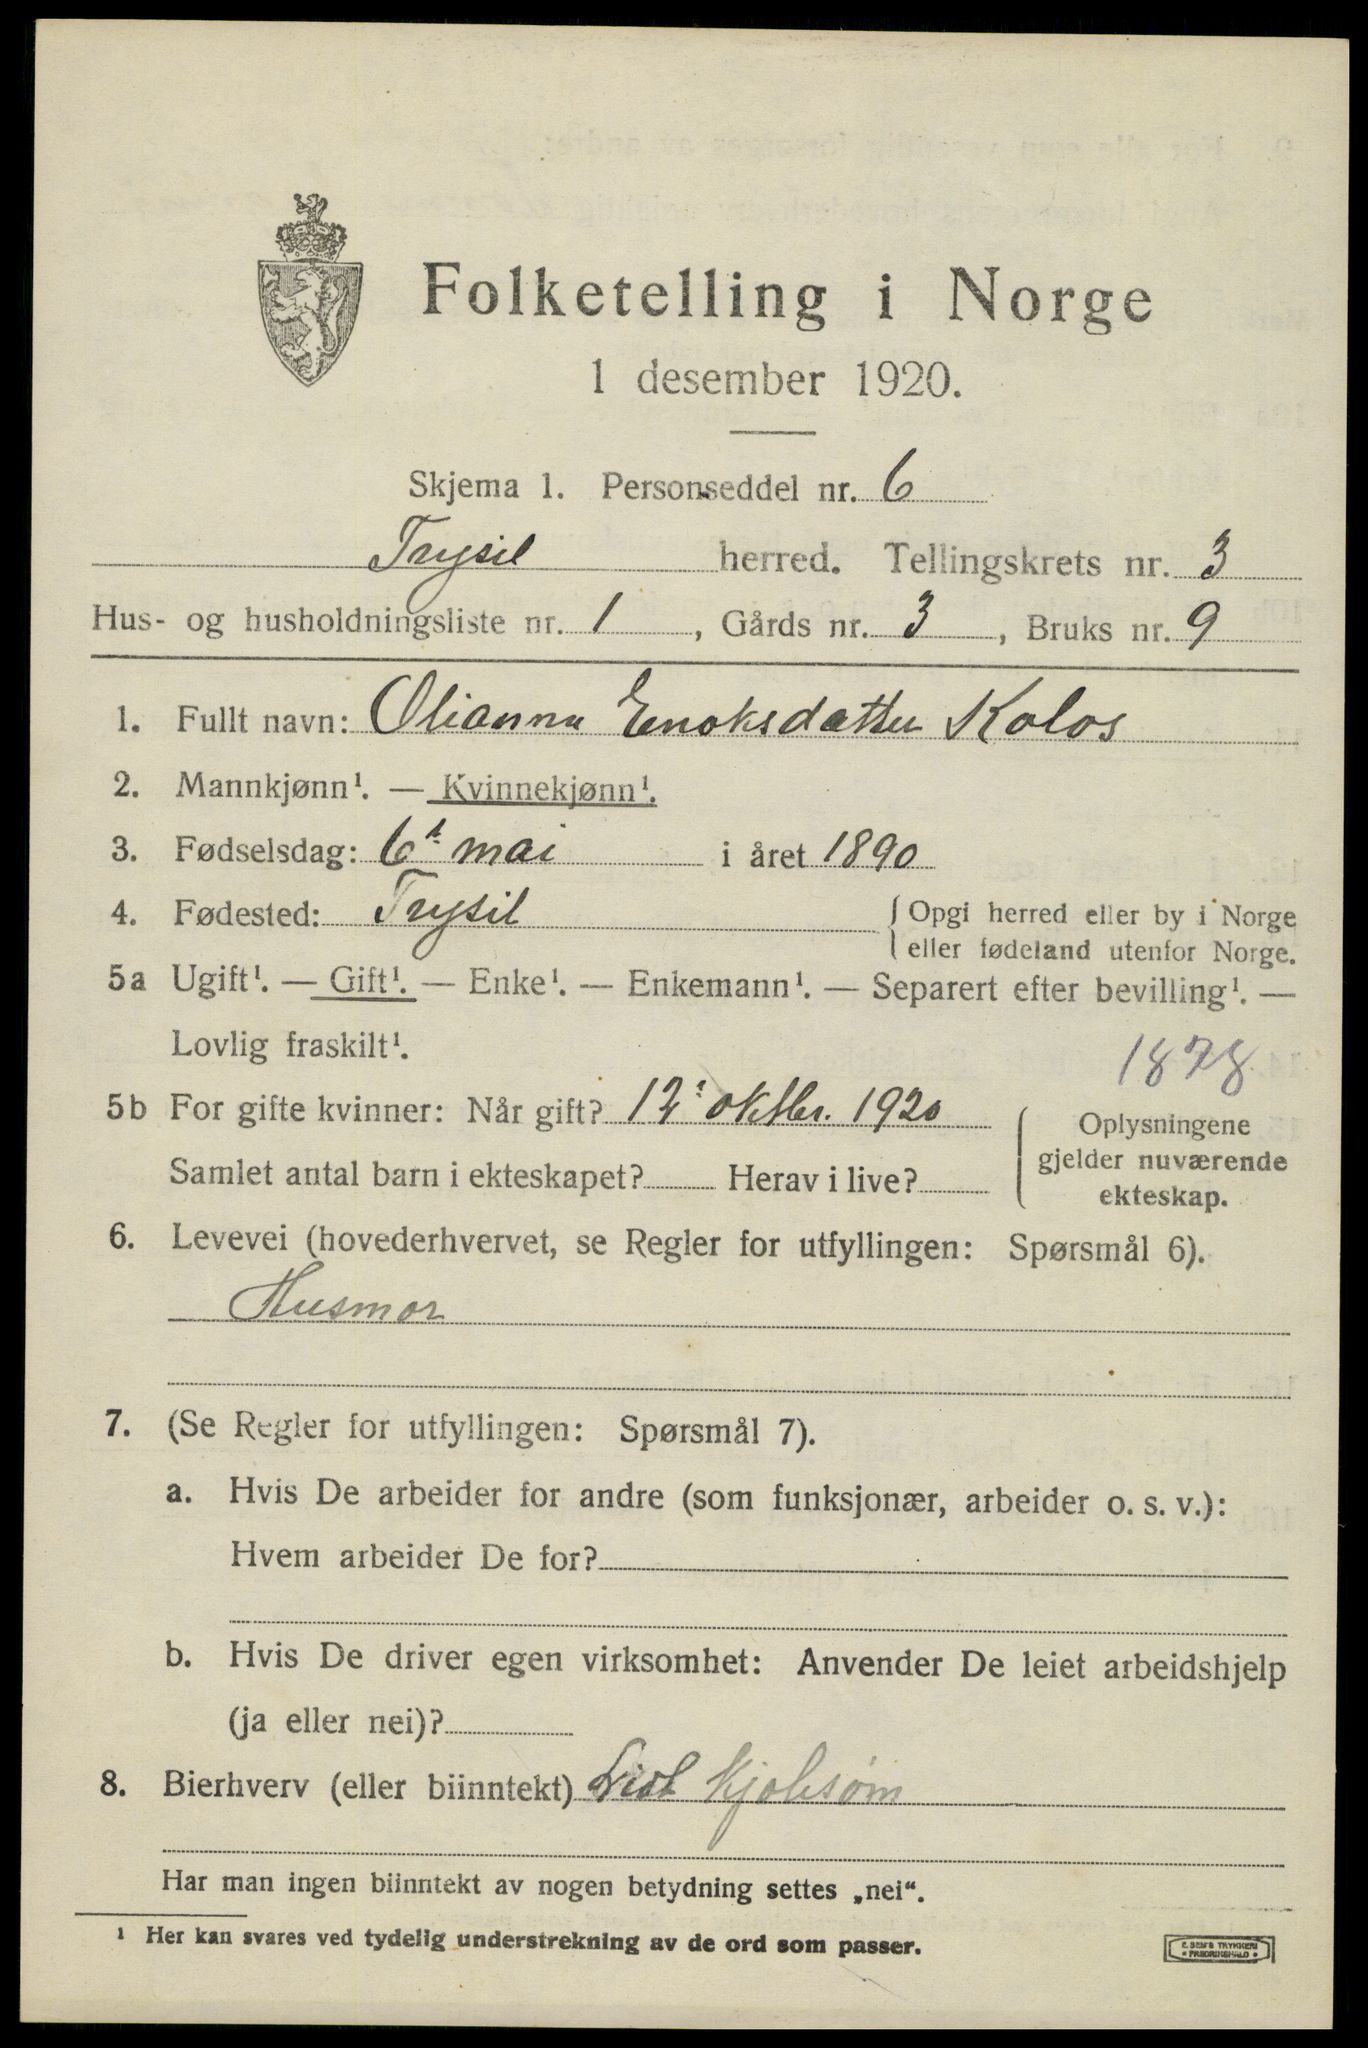 Folketelling i Norge
1 desember 1920.
Skjema 1. Personseddel nr. 6
Trysil herred. Tellingskrets nr. 3
Hus- og husholdningsliste nr. 1, Gårds nr. 3, Bruks nr. 9
1. Fullt navn: Olianna Enoksdatter Kolos
2. Mannkjønn¹. — Kvinnekjønn¹.
3. Fødselsdag: 6t mai i året 1890
4. Fødested: Trysil {Opgi herred eller by i Norge
eller fødeland utenfor Norge.
5a Ugift¹. — Gift¹. — Enke¹. — Enkemann¹. — Separert efter bevilling¹. —
Lovlig fraskilt¹.
1878
5b For gifte kvinner: Når gift? 12t oktbr. 1920
Samlet antal barn i ekteskapet? Herav i live?
{Oplysningene
gjelder nuværende
ekteskap.
6. Levevei (hovederhvervet, se Regler for utfyllingen: Spørsmål 6).
Husmor
7. (Se Regler for utfyllingen: Spørsmål 7).
a. Hvis De arbeider for andre (som funksjonær, arbeider o. s. v.):
Hvem arbeider De for?
b. Hvis De driver egen virksomhet: Anvender De leiet arbeidshjelp
(ja eller nei)?
8. Bierhverv (eller biinntekt) Lidt kjolesøm
Har man ingen biinntekt av nogen betydning settes „nei“.
¹ Her kan svares ved tydelig understrekning av de ord som passer.
E. SEM'S TRYKKERI
• FREDRIKSHALD •